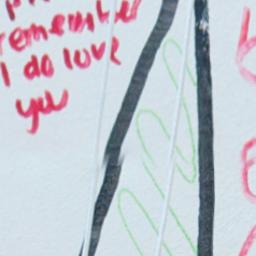 remember
I do love
you